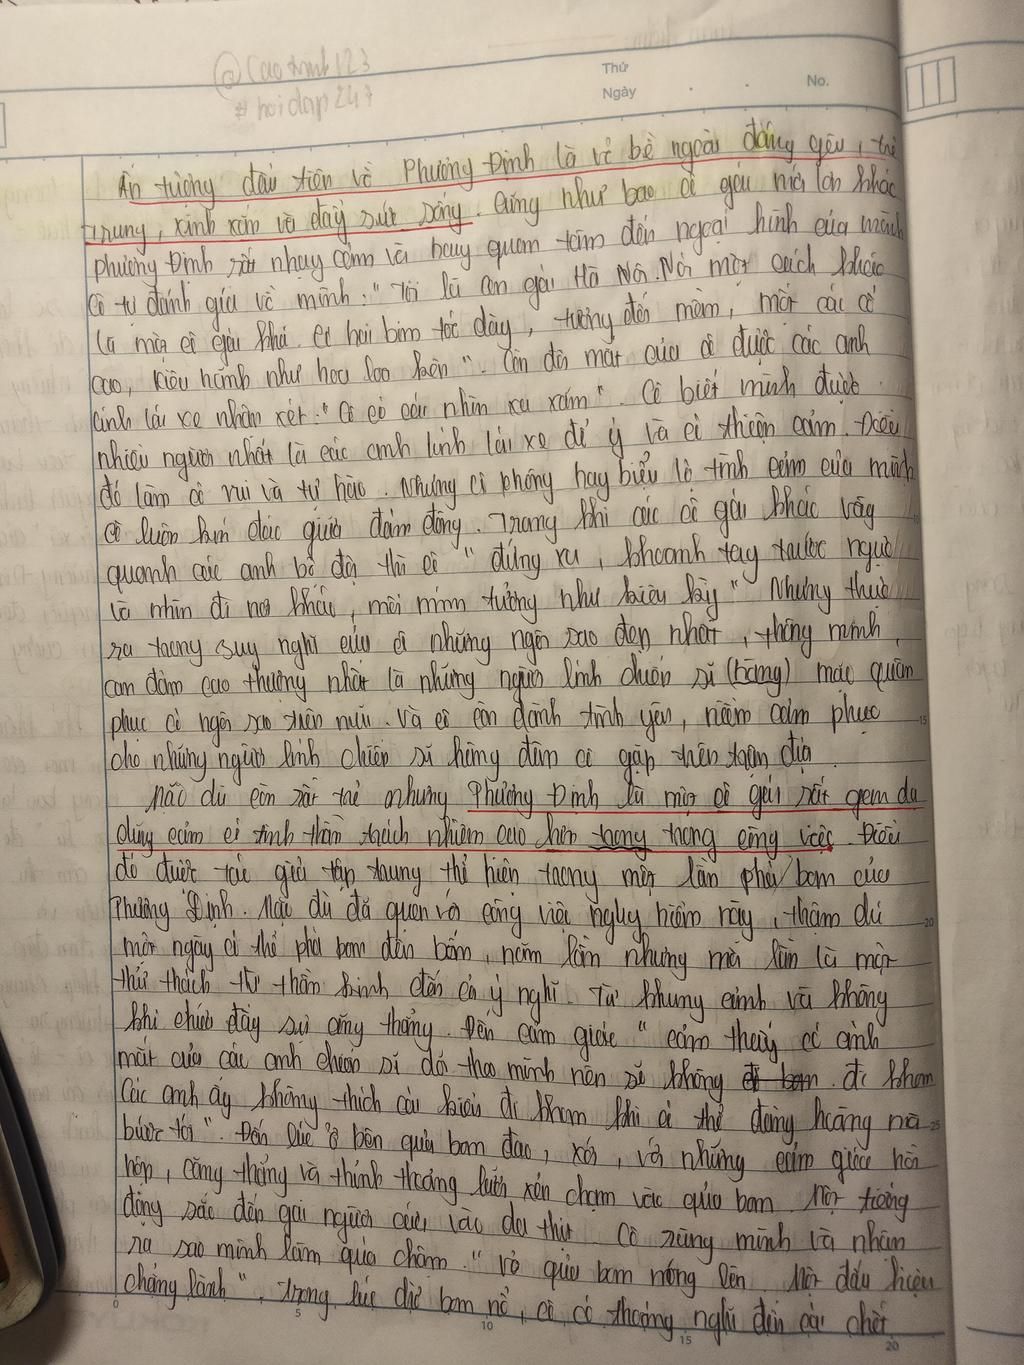 @Caotrinh123
# hoidap247
Thứ
Ngày
No.
Ấn tượng đầu tiên về Phương Định là vẻ bề ngoài đáng yêu, trẻ
trung, xinh xắn và đầy sức sống. Cũng như bao cô gái mới lớn khác
Phương Định rất nhạy cảm và hay quan tâm đến ngoại hình của mình
Cô tự đánh giá về mình: "Tôi là con gái Hà Nội. Nói một cách khác
là một cô gái khá. Có hai bím tóc dày, tương đối mềm, một cái cổ
cao, kiêu hãnh như hoa loa kèn". Còn đôi mắt của cô được các anh
lính lái xe nhận xét: "Cô có cái nhìn xa xăm". Cô biết mình được
nhiều người nhất là các anh lính lái xe để ý và có thiện cảm. Điều
đó làm cô vui và tự hào. Nhưng cô không hay biểu lộ tình cảm của mình
Cô luôn kín đáo giữa đám đông. Trong khi các cô gái khác vây
quanh các anh bộ đội thì cô "đứng ra, khoanh tay trước ngực
và nhìn đi nơi khác, môi mím tưởng như kiêu kỳ" Nhưng thực
ra trong suy nghĩ của cô những ngôi sao đẹp nhất, thông minh,
can đảm cao thượng nhất là những người lính chiến sĩ (hàng) mặc quân
phục có ngôi sao trên mũ. Và cô còn dành tình yêu, niềm cảm phục
cho những người lính chiến sĩ hằng đêm cô gặp trên trận địa.
Mặc dù còn rất trẻ nhưng Phương Định là một cô gái rất gan dạ
dũng cảm có tinh thần trách nhiệm cao hơn trong trong công việc. Điều
đó được tác giả tập trung thể hiện trong một lần phá bom của
Phương Định. Mặc dù đã quen với công việc nguy hiểm này, thậm chí
một ngày có thể phá bom đến bốn, năm lần nhưng mỗi lần là một
thử thách từ thần kinh đến cả ý nghĩ. Từ khung cảnh và không
khí chứa đầy sự căng thẳng. Đến cảm giác "cảm thấy có ánh
mắt của các anh chiến sĩ dõi theo mình nên sẽ không đi khom
Các anh ấy không thích cái kiểu đi khom khi có thể đàng hoàng mà
bước tới". Đến lúc ở bên quả bom đào, xới, với những cảm giác hồi
hộp, căng thẳng và thỉnh thoảng lưỡi xẻng chạm vào quả bom. Một tiếng
động sắc đến gai người cứa vào da thịt. Cô rùng mình và nhận
ra sao mình làm quá chậm. "vỏ quả bom nóng lên. Một dấu hiệu
chẳng lành". Trong lúc chờ bom nổ, cô có thoáng nghĩ đến cái chết
0
5
10
15
20
15
20
25